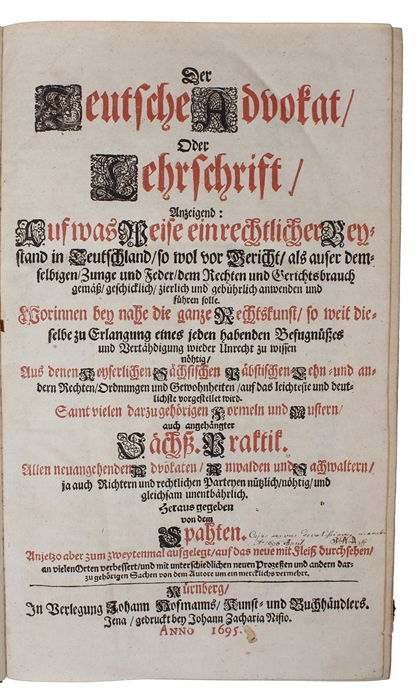 Der
Teutsche Advokat/
Oder
Lehrschrift/
Anzeigend:
Auf was Weise ein rechtlicher Bey-
stand in Teutschland/ so wol vor Gericht/ als auser dem-
selbigen/ Zunge und Feder/ dem Rechten und Gerichtsbrauch
gemäß/ geschicklich/ zierlich und gebührlich anwenden und
führen solle.
Worinnen bey nahe die ganze Rechtskunst/ so weit die-
selbe zu Erlangung eines jeden habenden Befugnüßes
und Vertähdigung wieder Unrecht zu wissen
nöhtig/
Aus denen Keyserlichen Sächsischen Päbstischen Lehn- und an-
dern Rechten/ Ordnungen und Gewohnheiten/ auf das leichteste und deut-
lichste vorgestellet wird.
Samt vielen darzu gehörigen Formeln und Mustern/
auch angehängter
Sächß. Praktik.
Allen neuangehenden Advokaten/ Anwalden und Sachwaltern/
ja auch Richtern und rechtlichen Parteyen nützlich/ nöhtig/ und
gleichsam unentbährlich.
Heraus gegeben
von dem
Spahten.
Anjetzo aber zum zweytenmal aufgelegt/ auf das neue mit Fleiß durchsehen/
an vielen Orten verbessert/ und mit unterschiedlichen neuen Prozeßen und andern dar-
zu gehörigen Sachen von dem Autore um ein merckliches vermehret.
Nürnberg/
In Verlegung Johann Hofmanns/ Kunst- und Buchhändlers.
Jena/ gedruckt bey Johann Zacharia Nisio.
ANNO 1695.